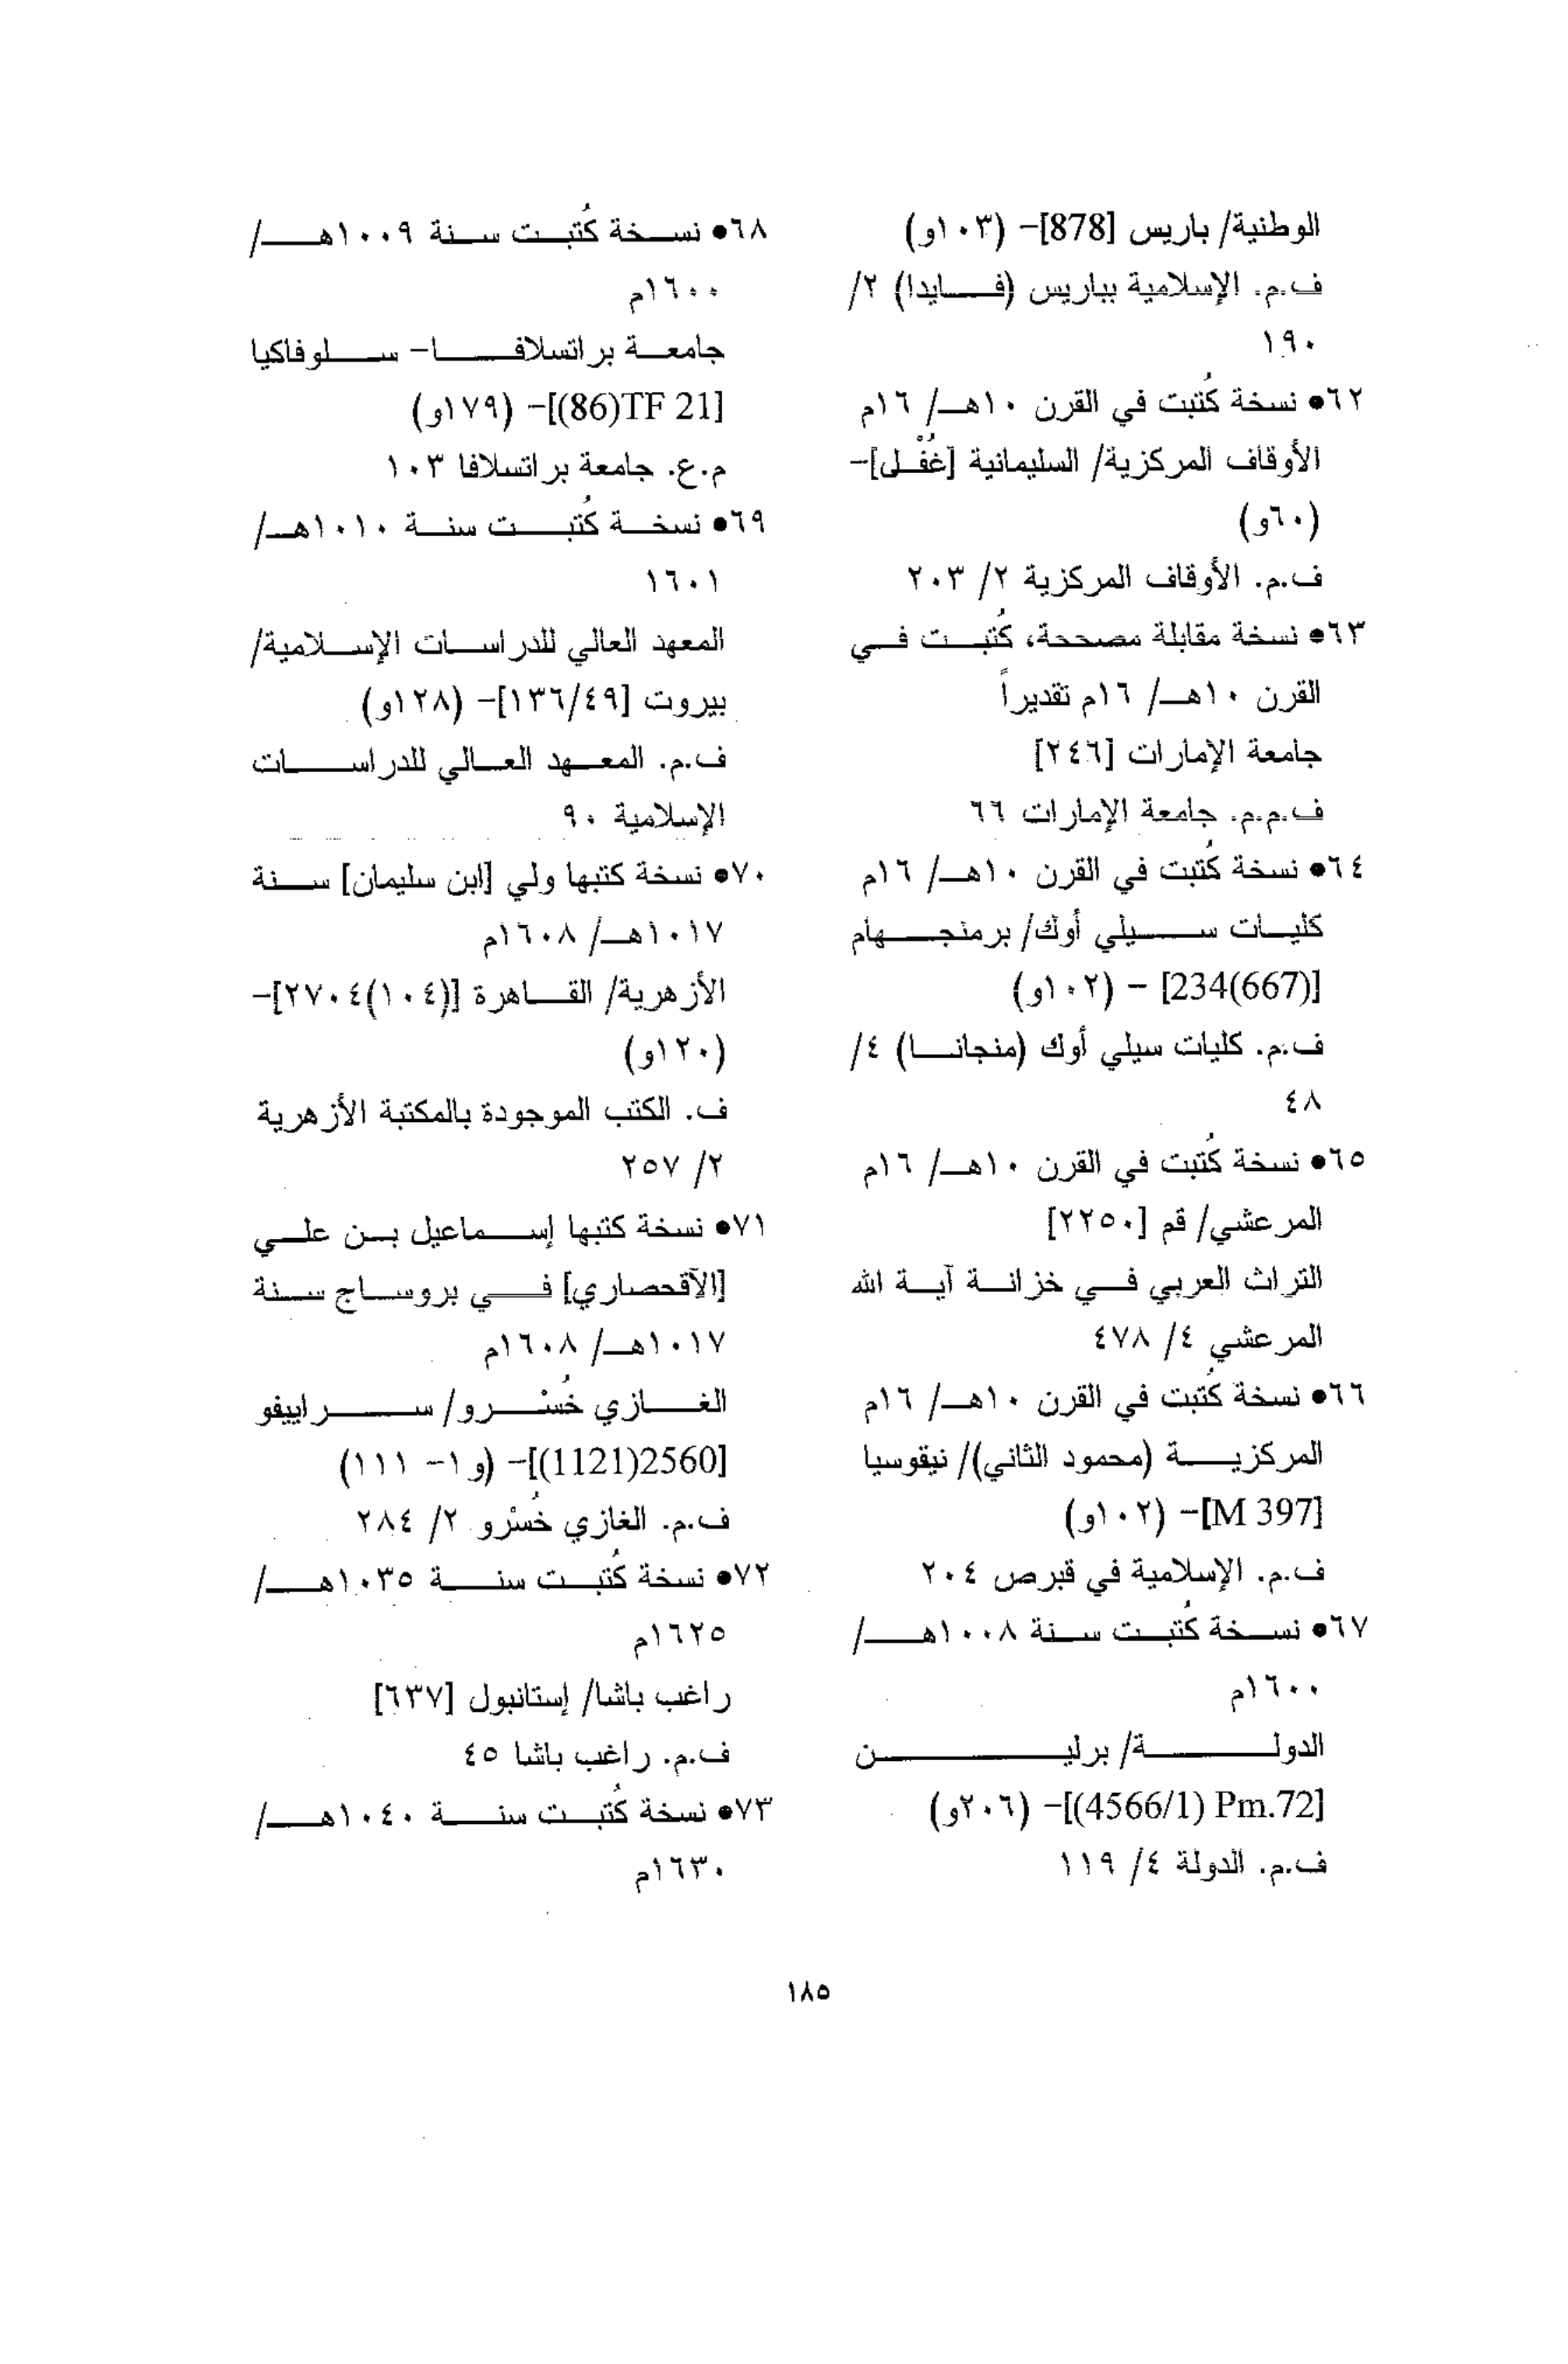 الوطنية/ باريس [878]- (١٠٣و)
ف.م. الإسلامية بباريس (فايدا) ٢/
١٩٠
٦٢• نسخة كُتبت في القرن ١٠هـ/ ١٦م
الأوقاف المركزية/ السليمانية [غُفْل]-
(٦٠و)
ف.م. الأوقاف المركزية ٢/ ٢٠٣
٦٣• نسخة مقابلة مصححة، كُتبت في
القرن ١٠هـ/ ١٦م تقديراً
جامعة الإمارات [٢٤٦]
ف.م.م. جامعة الإمارات ٦٦
٦٤• نسخة كُتبت في القرن ١٠هـ/ ١٦م
كليات سيلي أوك/ برمنجهام
[234(667)] - (١٠٢و)
ف.م. كليات سيلي أوك (منجانا) ٤/
٤٨
٦٥• نسخة كُتبت في القرن ١٠هـ/ ١٦م
المرعشي/ قم [٢٢٥٠]
التراث العربي في خزانة آية الله
المرعشي ٤/ ٤٧٨
٦٦• نسخة كُتبت في القرن ١٠هـ/ ١٦م
المركزية (محمود الثاني)/ نيقوسيا
[M 397]- (١٠٢و)
ف.م. الإسلامية في قبرص ٢٠٤
٦٧• نسخة كُتبت سنة ١٠٠٨هـ/
١٦٠٠م
الدولة/ برلين
[(4566/1) Pm.72]- (٢٠٦و)
ف.م. الدولة ٤/ ١١٩
٦٨• نسخة كُتبت سنة ١٠٠٩هـ/
١٦٠٠م
جامعة براتسلافا- سلوفاكيا
[(86)TF 21]- (١٧٩و)
م.ع. جامعة براتسلافا ١٠٣
٦٩• نسخة كُتبت سنة ١٠١٠هـ/
١٦٠١
المعهد العالي للدراسات الإسلامية/
بيروت [١٣٦/٤٩]- (١٢٨و)
ف.م. المعهد العالي للدراسات
الإسلامية ٩٠
٧٠• نسخة كتبها ولي [ابن سليمان] سنة
١٠١٧هـ/ ١٦٠٨م
الأزهرية/ القاهرة [(١٠٤)٢٧٠٤]-
(١٢٠و)
ف. الكتب الموجودة بالمكتبة الأزهرية
٢/ ٢٥٧
٧١• نسخة كتبها إسماعيل بن علي
[الآقحصاري] في بروساج سنة
١٠١٧هـ/ ١٦٠٨م
الغازي خُسْرو/ سراييفو
[2560(1121)]- (و١- ١١١)
ف.م. الغازي خُسْرو ٢/ ٢٨٤
٧٢• نسخة كُتبت سنة ١٠٣٥هـ/
١٦٢٥م
راغب باشا/ إستانبول [٦٣٧]
ف.م. راغب باشا ٤٥
٧٣• نسخة كُتبت سنة ١٠٤٠هـ/
١٦٣٠م
١٨٥